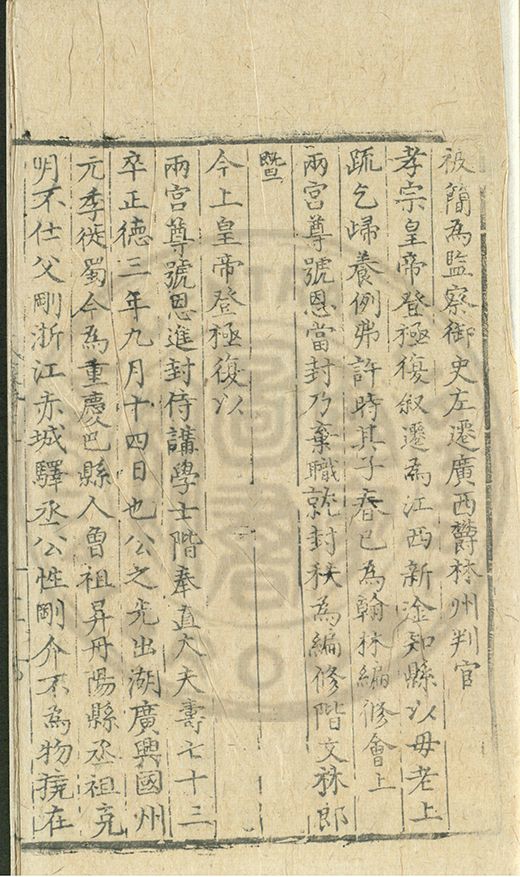 被簡為監察御史左遷廣西欝林州判官
孝宗皇帝登極復叙遷為江西新淦知縣以母老上
疏乞歸養例弗許時其子春已為翰林編修會上
兩宮尊號恩當封乃棄職就封秩為編修階文林郎
暨
今上皇帝登極復以
兩宮尊號恩進封侍講學士階奉直大夫壽七十三
卒正德三年九月十四日也公之先出湖廣興國州
元季徙蜀今為重慶巴縣人曾祖昇丹陽縣丞祖克
明不仕父剛浙江赤城驛丞公性剛介不為物撓在